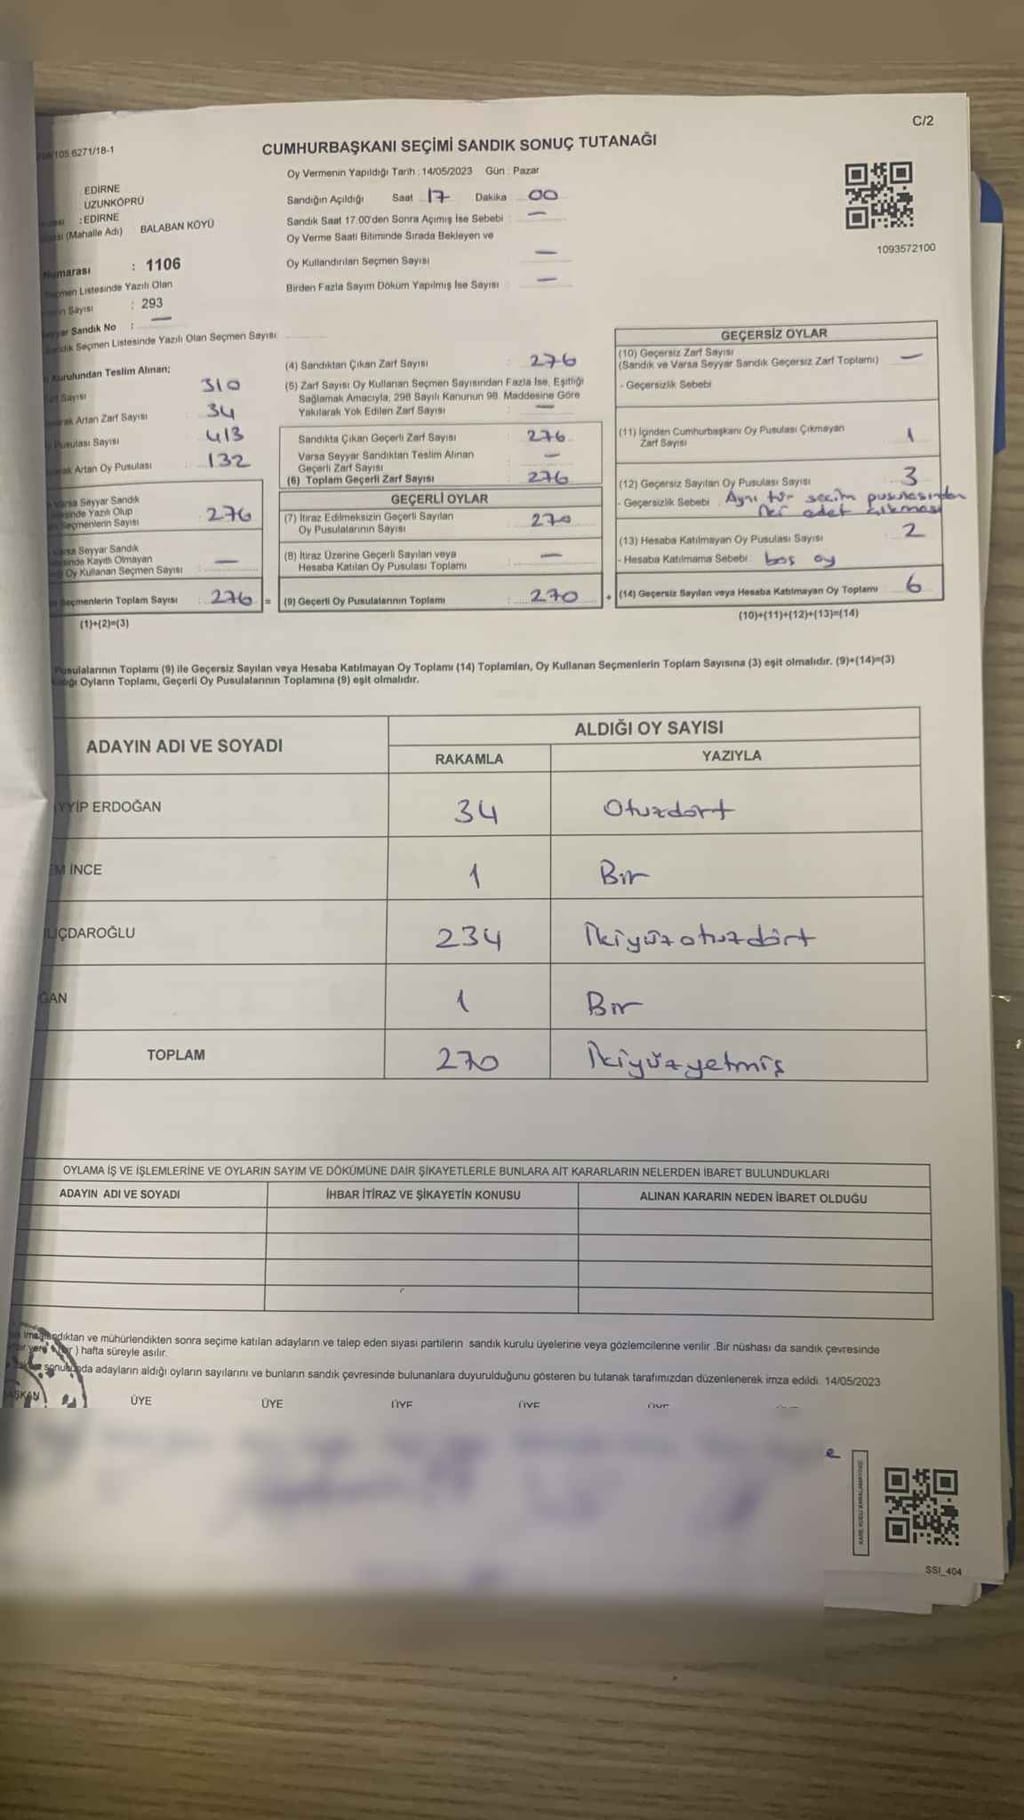 C/2
6271/18-1
CUMHURBAŞKANI SEÇİMİ SANDIK SONUÇ TUTANAĞI
Oy Vermenin Yapıldığı Tarih : 14/05/2023 Gün : Pazar
EDİRNE
UZUNKÖPRÜ
: EDİRNE
(Mahalle Adı) BALABAN KÖYÜ
Sandığın Açıldığı Saat 17 Dakika 00
Sandık Saat 17.00'den Sonra Açımış İse Sebebi : —
Oy Verme Saati Bitiminde Sırada Bekleyen ve
Oy Kullandırılan Seçmen Sayısı —
Birden Fazla Sayım Döküm Yapılmış İse Sayısı —
1093572100
: 1106
Listesinde Yazılı Olan
Sayısı : 293
Sandık No : —
Seçmen Listesinde Yazılı Olan Seçmen Sayısı
Kurulundan Teslim Alınan;
Sayısı 310
Artan Zarf Sayısı 34
Pusulası Sayısı 413
Artan Oy Pusulası 132
Seyyar Sandık
Yazılı Olup
Seçmenlerin Sayısı 276
Varsa Seyyar Sandık
Kayıtlı Olmayan
Oy Kullanan Seçmen Sayısı —
Seçmenlerin Toplam Sayısı : 276 =
(1)+(2)=(3)
(4) Sandıktan Çıkan Zarf Sayısı : 276
(5) Zarf Sayısı Oy Kullanan Seçmen Sayısından Fazla İse, Eşitliği
Sağlamak Amacıyla, 298 Sayılı Kanunun 98. Maddesine Göre
Yakılarak Yok Edilen Zarf Sayısı —
Sandıkta Çıkan Geçerli Zarf Sayısı 276
Varsa Seyyar Sandıktan Teslim Alınan
Geçerli Zarf Sayısı —
(6) Toplam Geçerli Zarf Sayısı 276
GEÇERLİ OYLAR
(7) İtiraz Edilmeksizin Geçerli Sayılan
Oy Pusulalarının Sayısı 270
(8) İtiraz Üzerine Geçerli Sayılan veya
Hesaba Katılan Oy Pusulası Toplamı —
(9) Geçerli Oy Pusulalarının Toplamı : 270 +
GEÇERSİZ OYLAR
(10) Geçersiz Zarf Sayısı
(Sandık ve Varsa Seyyar Sandık Geçersiz Zarf Toplamı) —
- Geçersizlik Sebebi
(11) İçinden Cumhurbaşkanı Oy Pusulası Çıkmayan
Zarf Sayısı 1
(12) Geçersiz Sayılan Oy Pusulası Sayısı 3
- Geçersizlik Sebebi : Aynı tür seçim pusulasından
iki adet çıkması
(13) Hesaba Katılmayan Oy Pusulası Sayısı 2
- Hesaba Katılmama Sebebi boş oy
(14) Geçersiz Sayılan veya Hesaba Katılmayan Oy Toplamı 6
(10)+(11)+(12)+(13)=(14)
Pusulalarının Toplamı (9) ile Geçersiz Sayılan veya Hesaba Katılmayan Oy Toplamı (14) Toplamları, Oy Kullanan Seçmenlerin Toplam Sayısına (3) eşit olmalıdır. (9)+(14)=(3)
Oyların Toplamı, Geçerli Oy Pusulalarının Toplamına (9) eşit olmalıdır.
ADAYIN ADI VE SOYADI ALDIĞI OY SAYISI
RAKAMLA YAZIYLA
YYİP ERDOĞAN 34 Otuzdört
İNCE 1 Bir
IÇDAROĞLU 234 İkiyüzotuzdört
ĞAN 1 Bir
TOPLAM 270 İkiyüzyetmiş
OYLAMA İŞ VE İŞLEMLERİNE VE OYLARIN SAYIM VE DÖKÜMÜNE DAİR ŞİKAYETLERLE BUNLARA AİT KARARLARIN NELERDEN İBARET BULUNDUKLARI
ADAYIN ADI VE SOYADI İHBAR İTİRAZ VE ŞİKAYETİN KONUSU ALINAN KARARIN NEDEN İBARET OLDUĞU
ve mühürlendikten sonra seçime katılan adayların ve talep eden siyasi partilerin sandık kurulu üyelerine veya gözlemcilerine verilir .Bir nüshası da sandık çevresinde
) hafta süreyle asılır.
adayların aldığı oyların sayılarını ve bunların sandık çevresinde bulunanlara duyurulduğunu gösteren bu tutanak tarafımızdan düzenlenerek imza edildi. 14/05/2023
ÜYE ÜYE ÜYE ÜYE
SSI_404